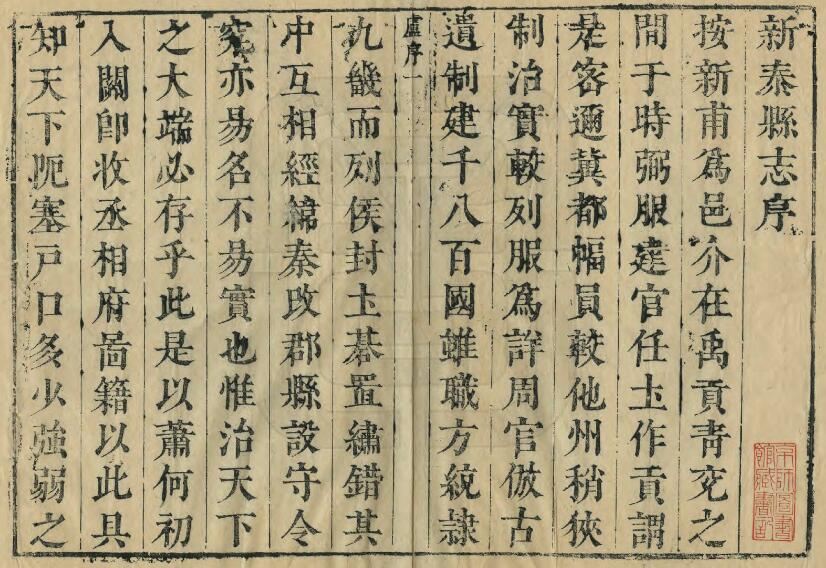 新泰縣志序
按新甫爲邑介在禹貢青兗之
間于時弼服建官任土作貢謂
是密邇冀都幅員較他州稍狹
制治實較列服爲詳周官倣古
遺制建千八百國雖職方統隷
盧序一
九畿而列侯封土碁置繡錯其
中互相經緯秦改郡縣設守令
究亦易名不易實也惟治天下
之大端必存乎此是以蕭何初
入關卽收丞相府啚籍以此具
知天下阨塞戸口多少強弱之